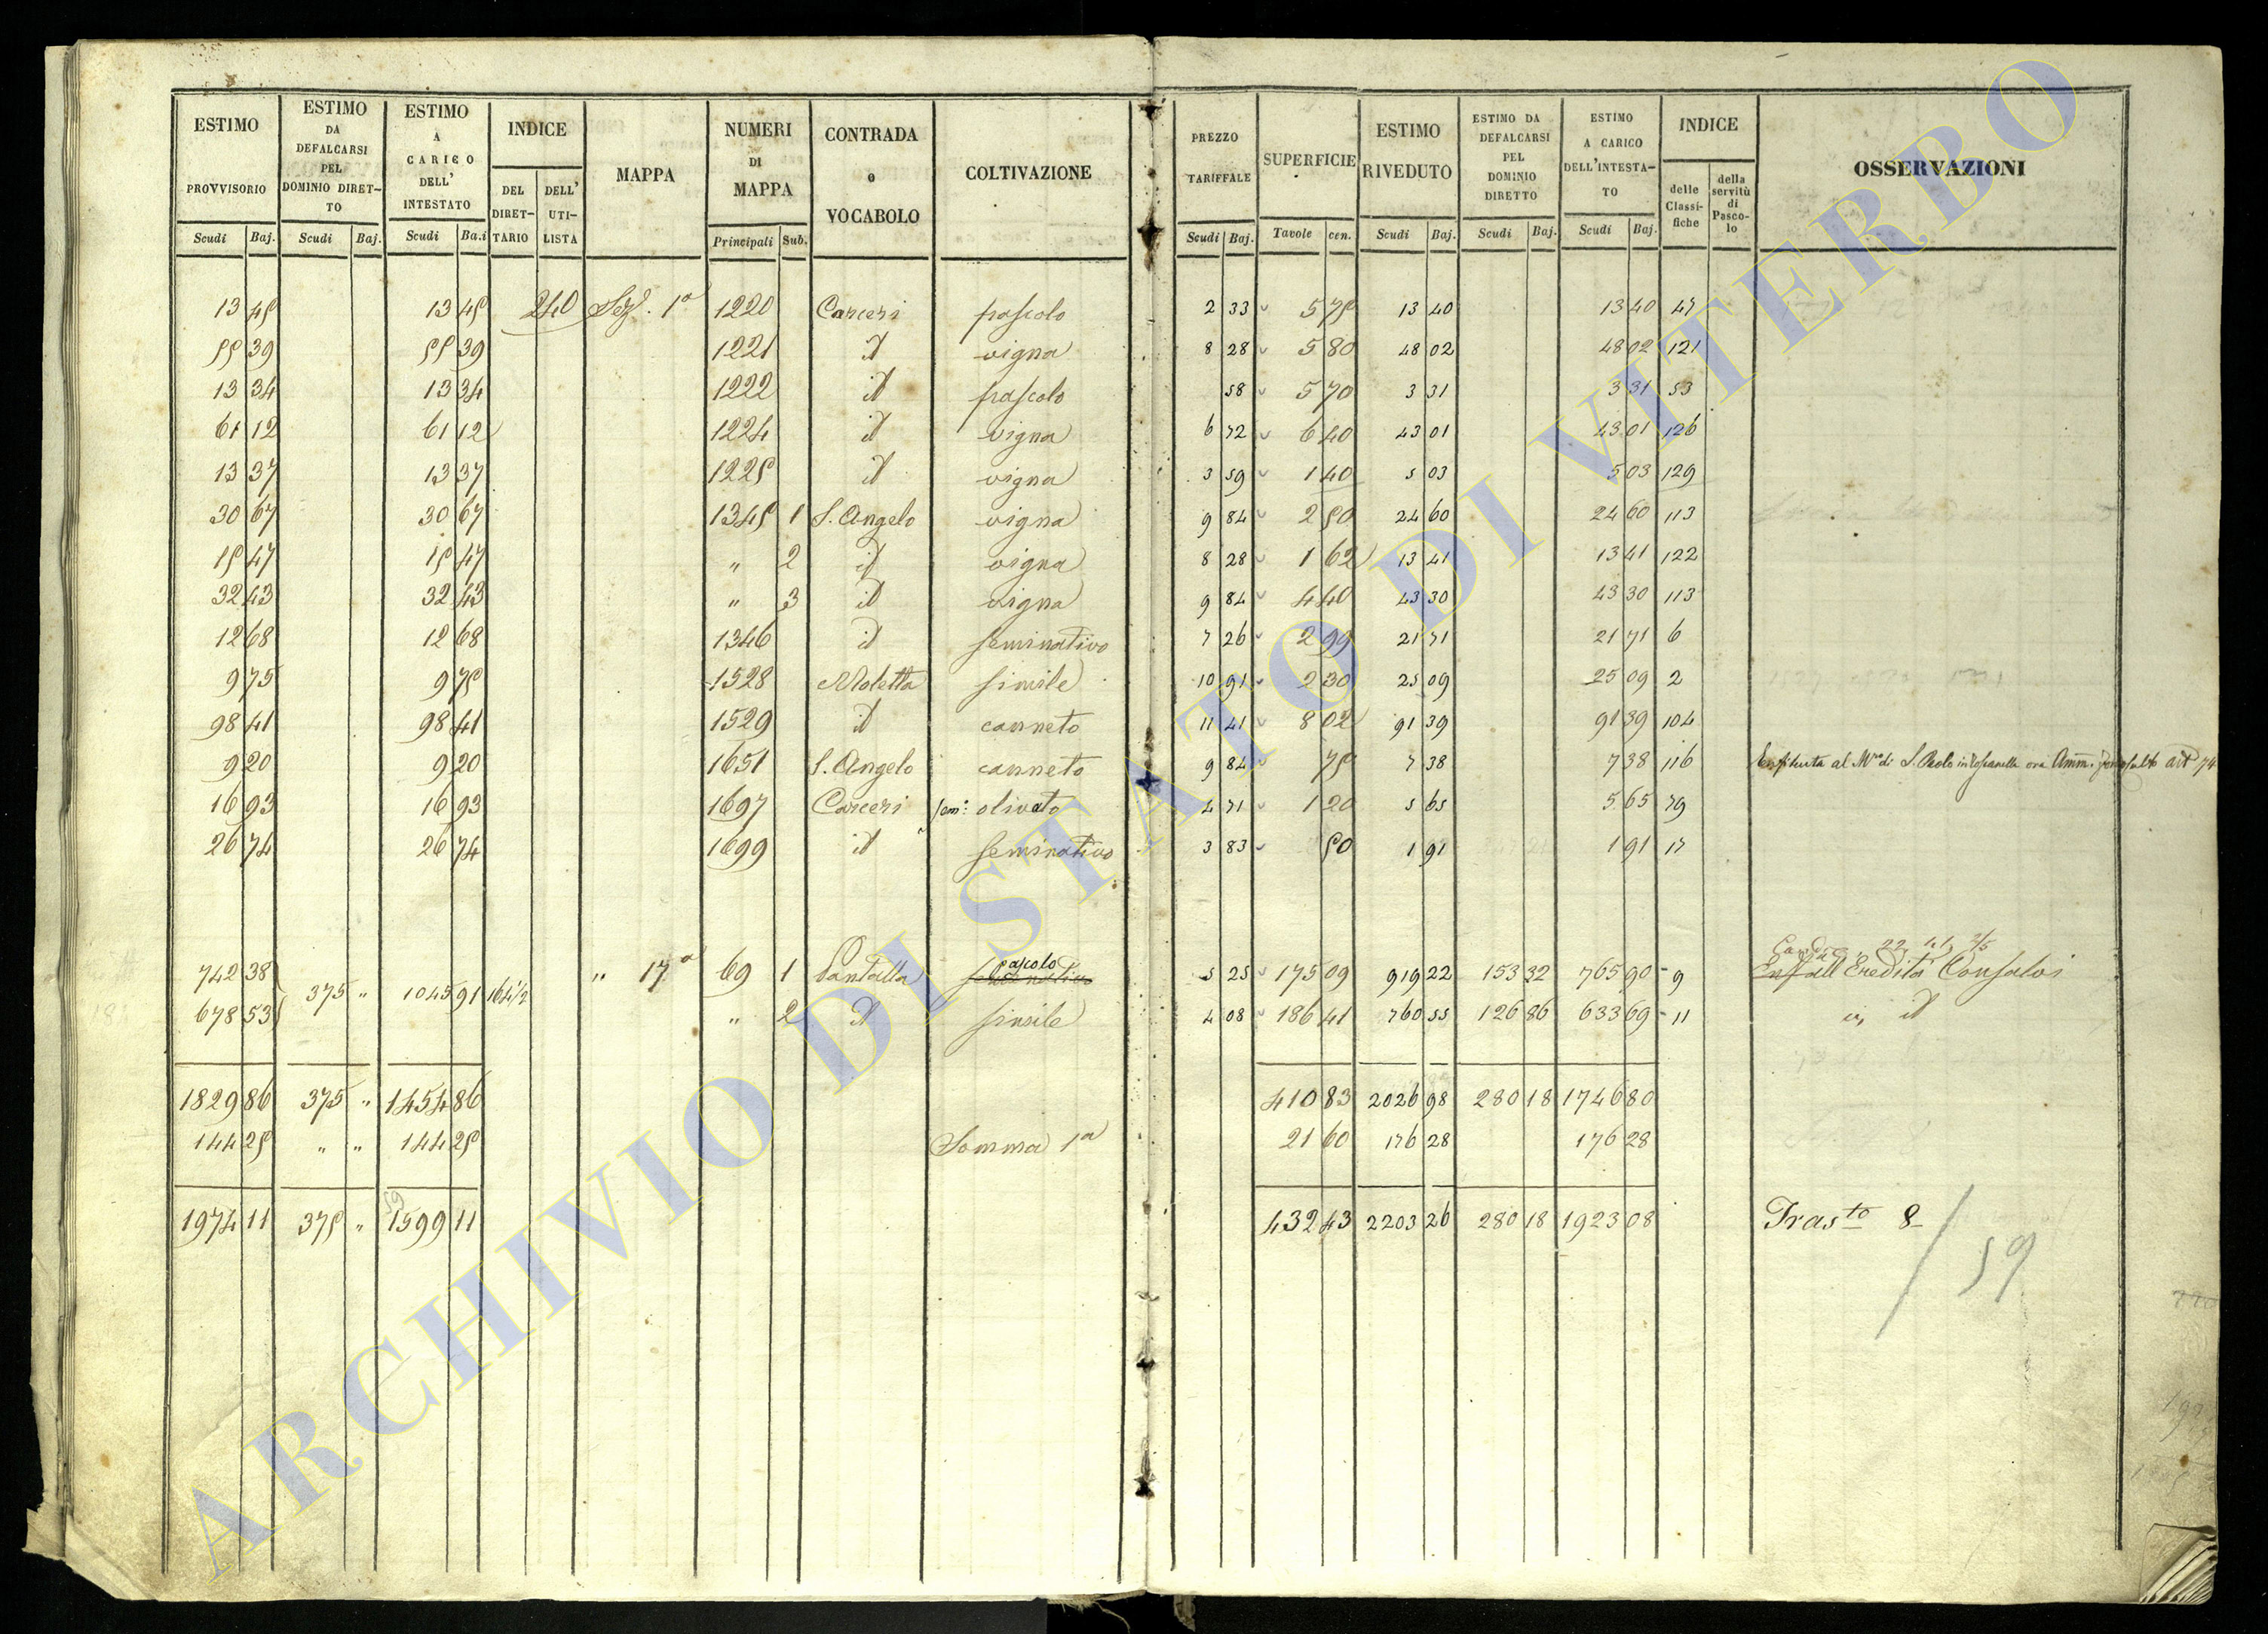 ESTIMO PROVVISORIO
ESTIMO DA DEFALCARSI PEL DOMINIO DIRETTO
ESTIMO A CARICO DELL' INTESTATO
INDICE
DEL DIRETTARIO
DELL' UTILISTA
MAPPA
NUMERI DI MAPPA
CONTRADA o VOCABOLO
COLTIVAZIONE
Scudi Baj. Scudi Baj. Scudi Ba.i Principali Sub.
PREZZO TARIFFALE
SUPERFICIE
ESTIMO RIVEDUTO
ESTIMO DA DEFALCARSI PEL DOMINIO DIRETTO
ESTIMO A CARICO DELL'INTESTATO
INDICE
delle Classifiche
della servitù di Pascolo
OSSERVAZIONI
Scudi Baj. Tavole cen. Scudi Baj. Scudi Baj. Scudi Baj.
13 45 13 45 240 Sez. 1a 1220 Carceri pascolo 2 33 5 75 13 40 13 40 47
55 39 55 39 1221 id vigna 8 28 5 80 48 02 48 02 121
13 34 13 34 1222 id pascolo 58 5 70 3 31 3 31 53
61 12 61 12 1224 id vigna 6 72 6 40 43 01 43 01 126
13 37 13 37 1225 id vigna 3 59 1 40 5 03 5 03 129
30 67 30 67 1345 1 S. Angelo vigna 9 84 2 50 24 60 24 60 113
15 47 15 47 " 2 id vigna 8 28 1 62 13 41 13 41 122
32 43 32 43 " 3 id vigna 9 84 4 40 43 30 43 30 113
12 68 12 68 1346 id seminativo 7 26 2 99 21 71 21 71 6
9 75 9 75 1528 Moletta simile 10 91 2 30 25 09 25 09 2
98 41 98 41 1529 id canneto 11 41 8 02 91 39 91 39 104
9 20 9 20 1651 S. Angelo canneto 9 84 75 7 38 7 38 116 al di S. Paolo in Toscanella ora Amm. art 74
16 93 16 93 1697 Carceri sem: olivato 4 71 1 20 5 65 5 65 79
26 74 26 74 1699 id seminativo 3 83 50 1 91 1 91 17
742 38 375 " 1045 91 164½ " 17a 69 1 Pantalla pascolo seminativo 5 25 175 09 919 22 153 32 765 90 9 22. 1.1. 2/5 Eredità Consalvi
678 53 " 2 id simile 4 08 186 41 760 55 126 86 633 69 11 id
1829 86 375 " 1454 86 410 83 2026 98 280 18 1746 80
144 25 " " 144 25 Somma 1a 21 60 176 28 176 28
1974 11 375 " 1599 11 432 43 2203 26 280 18 1923 08 Trasto 8
59
ARCHIVIO DI STATO DI VITERBO